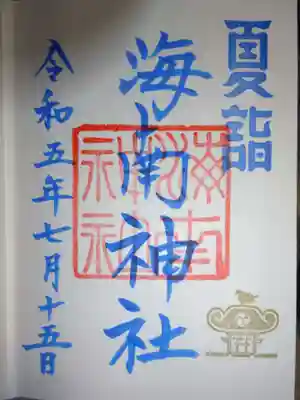 夏詣
海南神社
令和五年七月十五日
海南神社